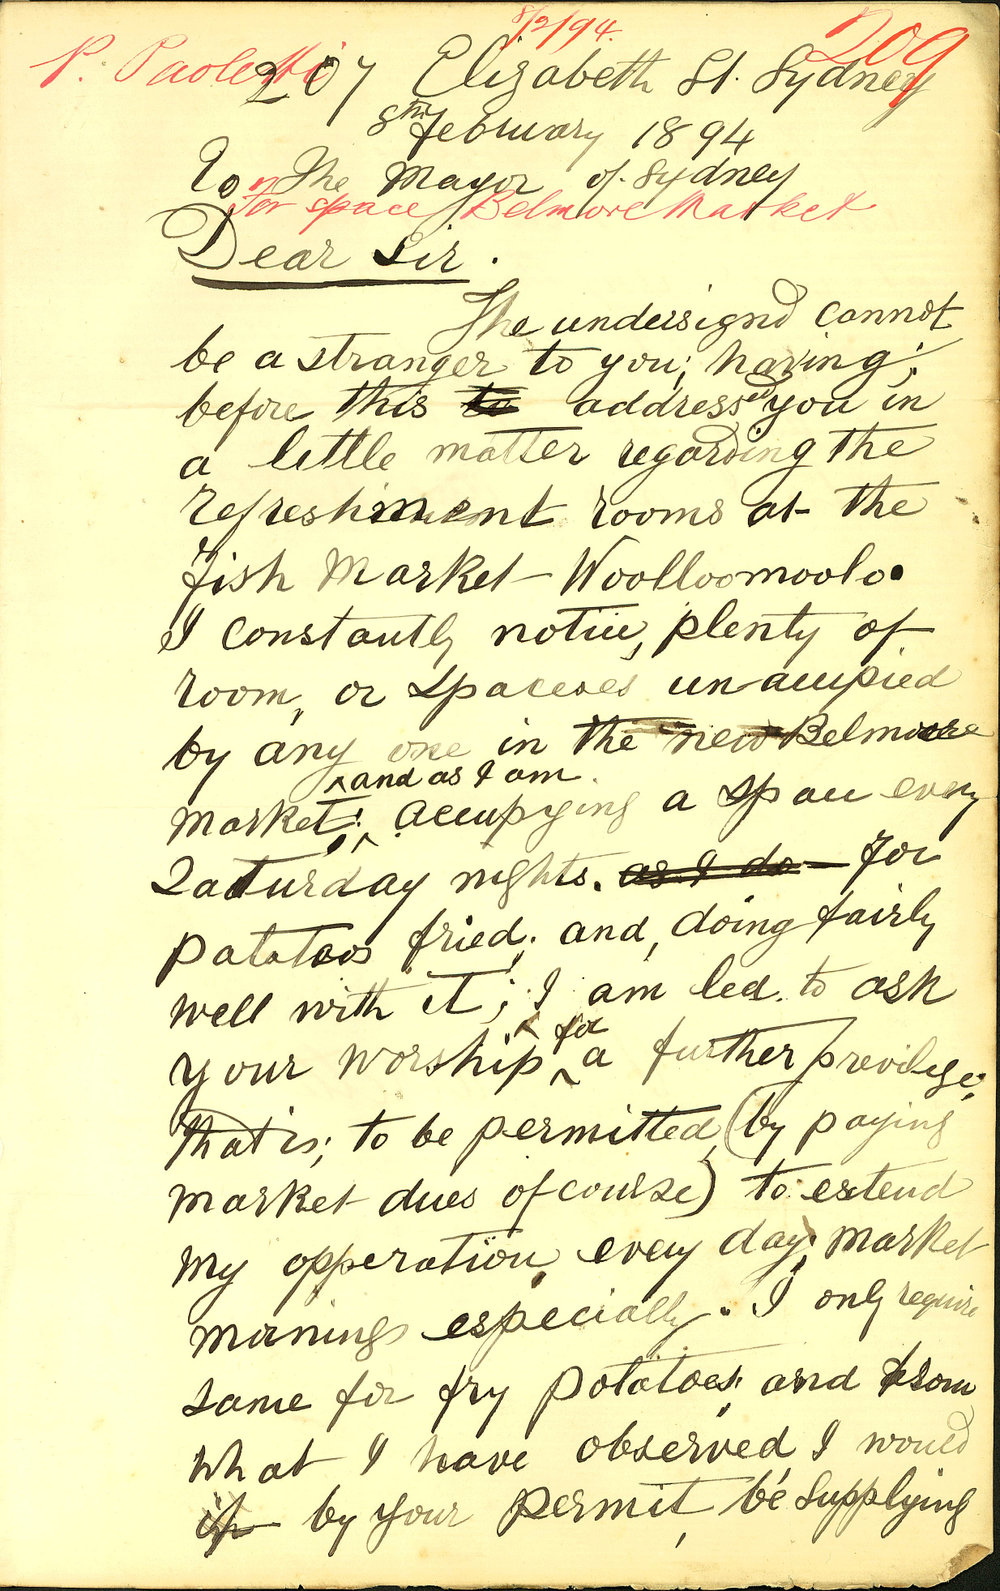 8/2/94.
209
P. Paoletti
207 Elizabeth St. Sydney
8th February 1894
To The Mayor of Sydney
for space Belmore Market
Dear Sir.
The undersigned cannot
be a stranger to you; having;
before this to addressed you in
a little matter regarding the
refreshment rooms at the
fish Market - Woolloomoolo.
I constantly notice, plenty of
room, or spaceses un-accupied
by any one in the new Belmore
^and as I am.
Market; accupying a space every
Saturday nights. as I do - for
patatoos fried; and, doing fairly
well with it; I am led. to ask
your worship ^for a further previlege;
that is; to be permitted, (by paying
market dues of course) to extend
my opperation, every day, market
mornings especially. I only require
same for fry potatoes, and from
what I have observed I would
if by your permit, be supplying